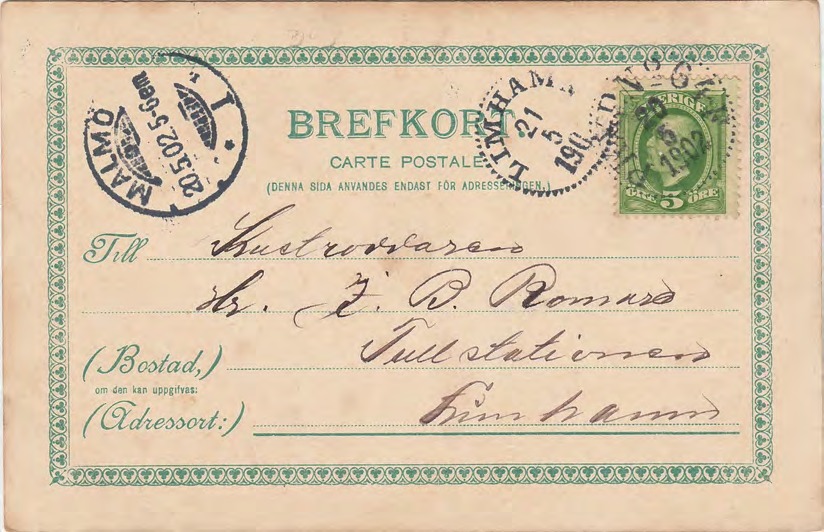 MALMÖ
20.5.02.5-6em
1
LIMHAMN
21
5
190
20
5
1902
SVERIGE
5
ÖRE
BREFKORT.
CARTE POSTALE
(DENNA SIDA ANVÄNDES ENDAST FÖR ADRESSERINGEN.)
Till Kustroddaren
Hr. B. Romare
(Bostad,) Tullstationen
om den kan uppgifvas:
(Adressort:) Limhamn